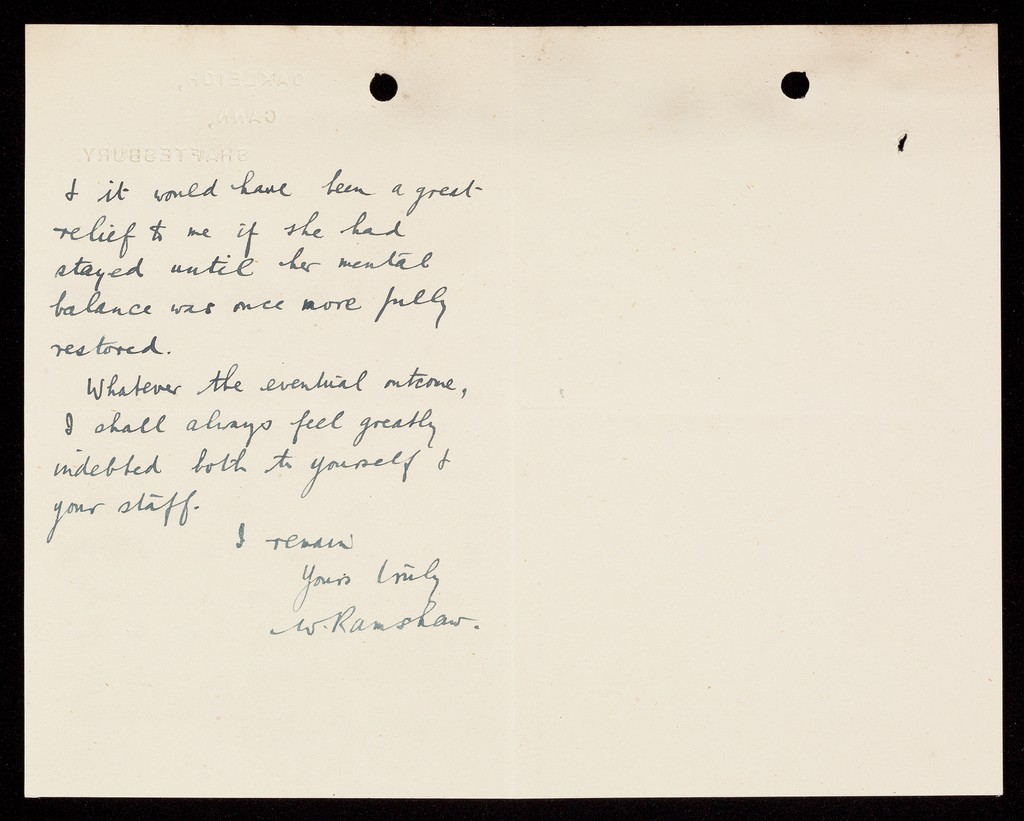 OAKLEIGH,
CANN,
SHAFTESBURY.
& it would have been a great
relief to me if she had
stayed until her mental
balance was once more fully
restored.
Whatever the eventual outcome,
I shall always feel greatly
indebted both to yourself &
your staff.
I remain
Yours truly
W. Ramshaw.